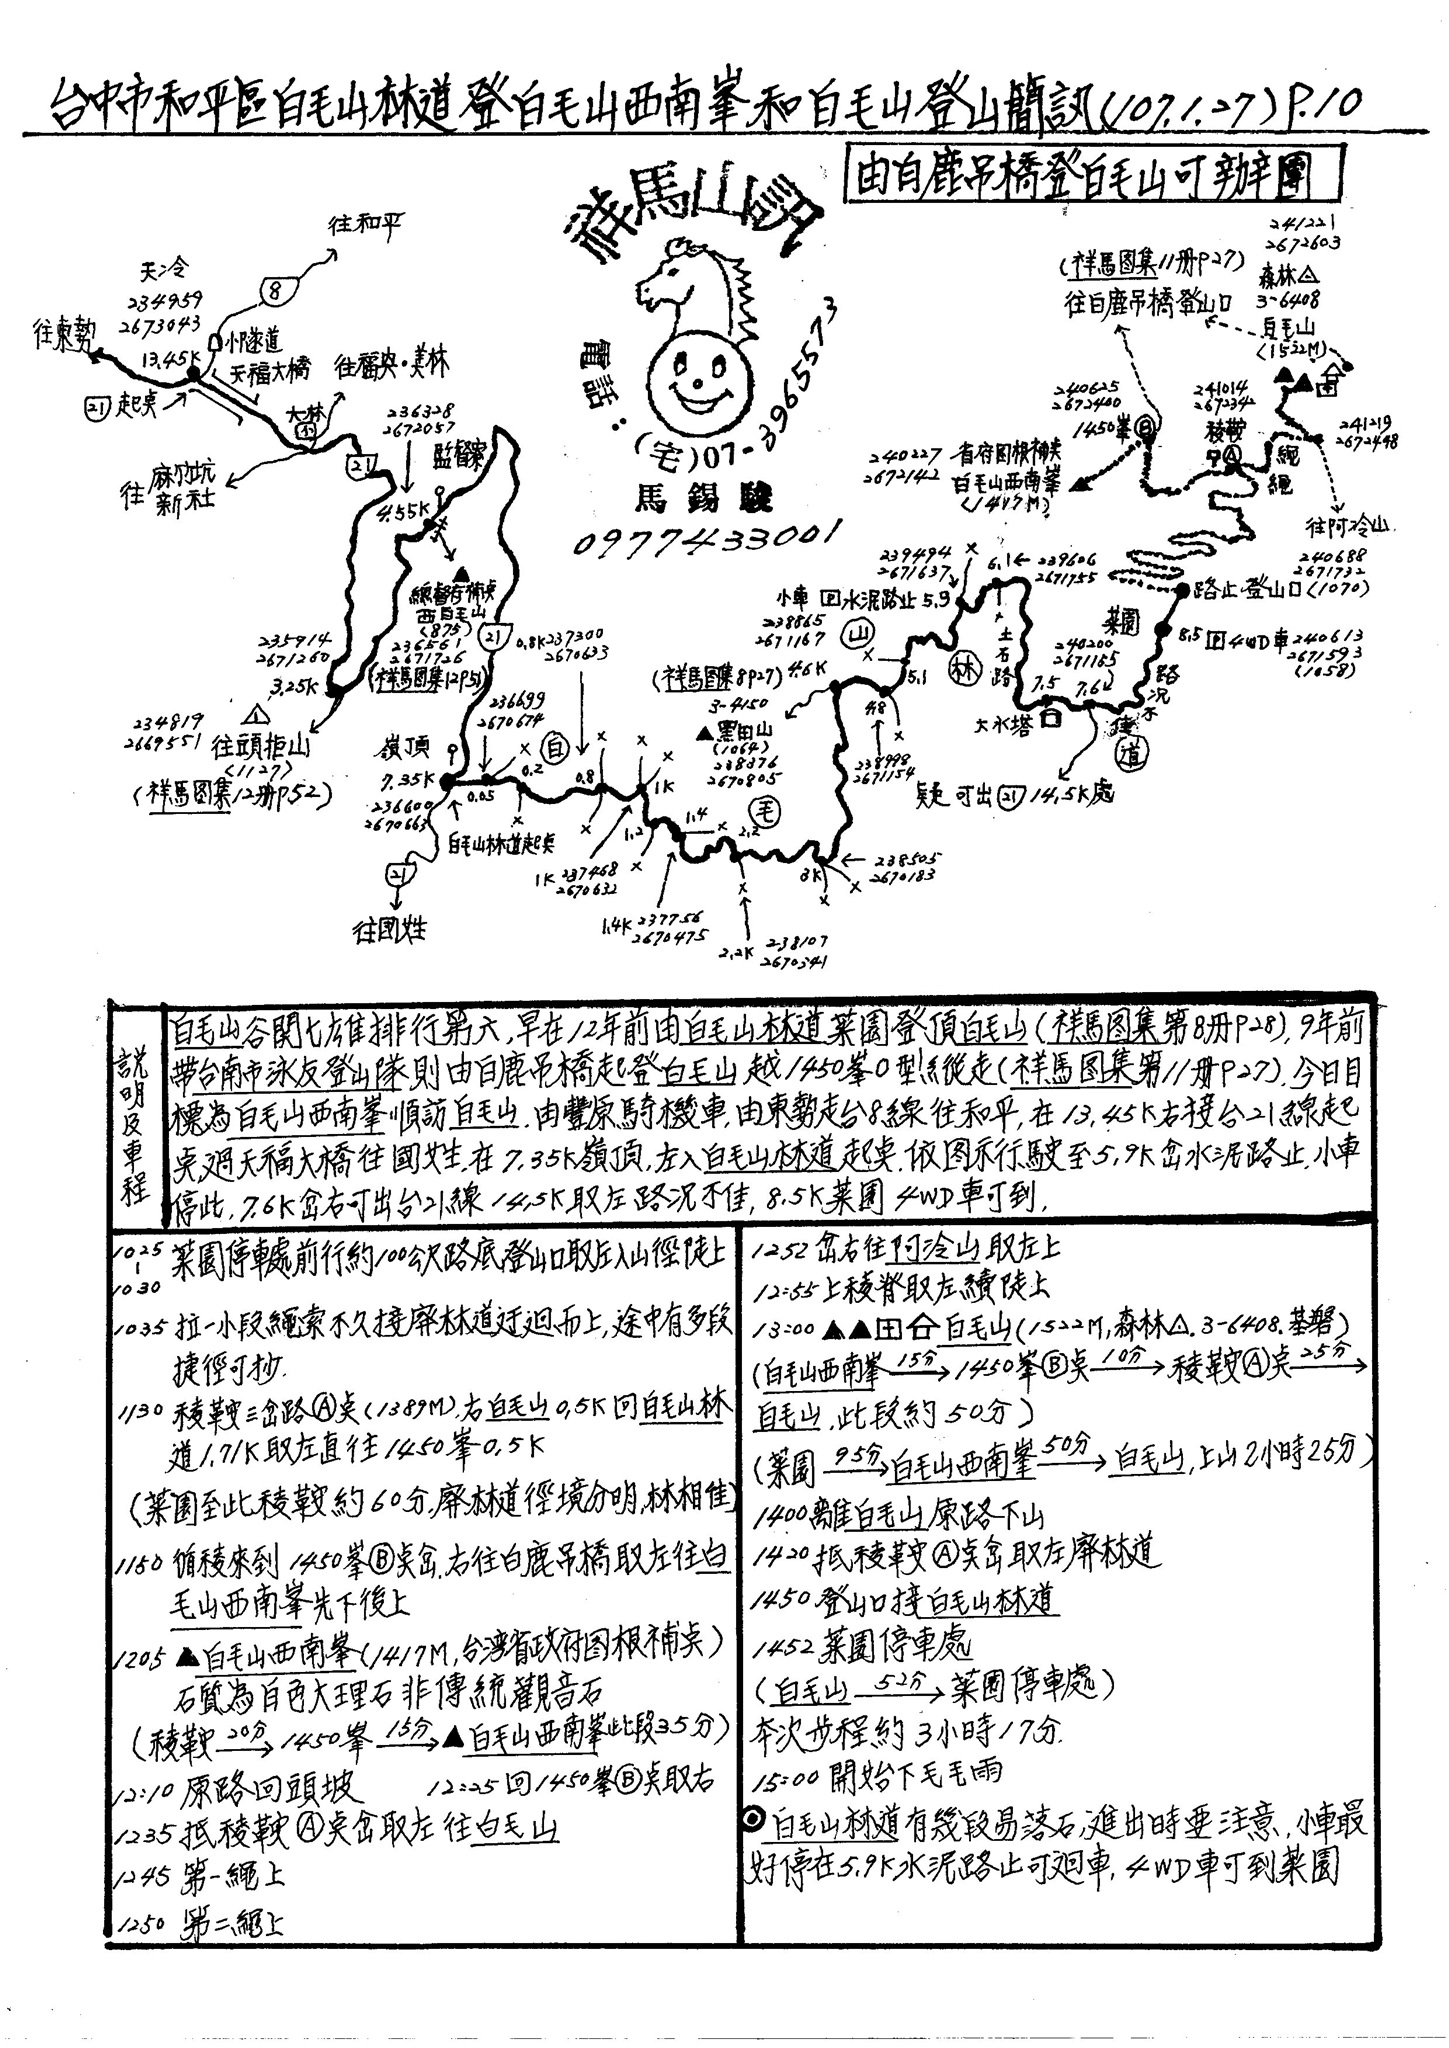 台中市和平區白毛山林道登白毛山西南峯和白毛山登山簡訊(107.1.27)P.10
由白鹿吊橋登白毛山可辦團
祥馬山訊
電話:(宅)07-3965573
馬錫駿
0977433001
往和平
8
天冷
234959
2673043
往東勢
小隧道
13.45K
天福大橋
往福央·美林
21起桌
大林
236328
2672057
監督寮
21
往麻竹坑
新社
4.55K
總督府補桌
西白毛山
(875)
236561
2671726
(祥馬图集12P51)
235914
2671260
3.25K
21
0.8K 237300
2670633
234819
2669551
往頭拒山
(1127)
(祥馬图集12册P52)
236699
2670674
嶺頂
7.35K
236600
2670663
0.05
0.2
白
0.8
1K
白毛山林道起桌
21
往國姓
1.2
1K 237468
2670632
1.4
1.4K 237756
2670475
2.2
2.2K 238107
2670341
3K
238505
2670183
毛
(祥馬图集8P27)
4.6K
3-4150
▲黑田山
(1064)
238376
2670805
4.8
238998
2671154
5.1
山
小車 P 水泥路止 5.9
238865
2671167
239494
2671637
6.1
239606
2671755
林
土石路
240200
2671155
7.5
7.6
大水塔
路況不佳
道
桌走 可出21 14.5K處
菜園
8.5 P 4WD車 240613
2671593
(1058)
路止登山口
240688
2671732
(1070)
往阿冷山
241219
2672448
繩
繩
241014
2672342
稜鞍
A
240625
2672400
1450峯 B
240227
2672142
省府图根補桌
白毛山西南峯
(1417M)
(祥馬图集11册P27)
往白鹿吊橋登山口
241221
2672603
森林△
3-6408
白毛山
(1522M)
說明及車程
白毛山谷関七雄排行第六,早在12年前由白毛山林道菜園登頂白毛山(祥馬图集第8册P28),9年前
帶台南市泳友登山隊則由白鹿吊橋起登白毛山越1450峯O型縱走(祥馬图集第11册P27).今日目
標為白毛山西南峯順訪白毛山.由豐原騎機車,由東勢走台8線往和平,在13.45K右接台21線起
桌過天福大橋往國姓,在7.35K嶺頂,左入白毛山林道起桌.依图示行駛至5.9K岔水泥路止,小車
停此,7.6K岔右可出台21線14.5K取左路況不佳,8.5K菜園4WD車可到.
1025
|
1030
菜園停車處前行約100公尺路底登山口取左入山徑陡上
1035 拉一小段繩索不久接廢林道迂迴而上,途中有多段
捷徑可抄.
1130 稜鞍三岔路Ⓐ桌(1389M).右白毛山0.5K回白毛山林
道1.71K取左直往1450峯0.5K
(菜園至此稜鞍約60分,廢林道徑境分明,林相佳)
1150 循稜來到1450峯Ⓑ桌岔,右往白鹿吊橋取左往白
毛山西南峯先下後上
1205 ▲白毛山西南峯(1417M,台湾省政府图根補桌)
石質為白色大理石非傳統觀音石
(稜鞍 20分→ 1450峯 15分→ ▲白毛山西南峯此段35分)
12:10 原路回頭坡 12:25回1450峯Ⓑ桌取右
1235 抵稜鞍Ⓐ桌岔取左往白毛山
1245 第一繩上
1250 第二繩上
1252 岔右往阿冷山取左上
12:55上稜脊取左續陡上
13:00 ▲▲田 白毛山(1522M,森林△.3-6408.基磐)
(白毛山西南峯 15分→ 1450峯Ⓑ桌 10分→ 稜鞍Ⓐ桌 25分→
白毛山.此段約50分)
(菜園 95分→ 白毛山西南峯 50分→ 白毛山,上山2小時25分)
1400離白毛山原路下山
1420抵稜鞍Ⓐ桌岔取左廢林道
1450登山口接白毛山林道
1452 菜園停車處
(白毛山 52分→ 菜園停車處)
本次步程約3小時17分.
15:00 開始下毛毛雨
◎白毛山林道有幾段易落石,進出時要注意,小車最
好停在5.9K水泥路止可迴車,4WD車可到菜園